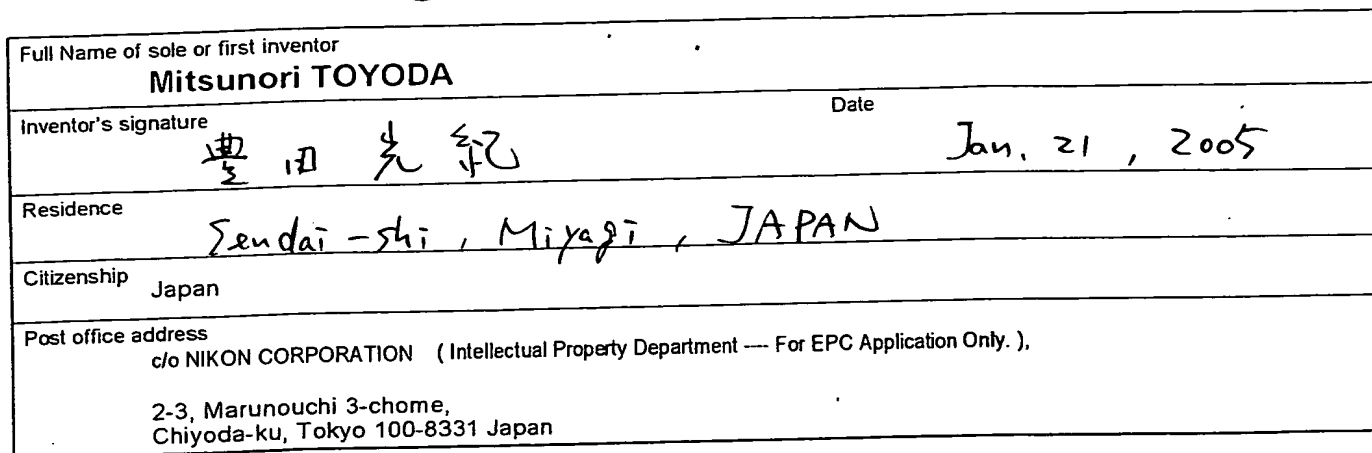 Full Name of sole or first inventor
Mitsunori TOYODA
Inventor's signature 豊田光紀 Date Jan. 21, 2005
Residence Sendai-shi, Miyagi, JAPAN
Citizenship Japan
Post office address
c/o NIKON CORPORATION ( Intellectual Property Department --- For EPC Application Only. ),
2-3, Marunouchi 3-chome,
Chiyoda-ku, Tokyo 100-8331 Japan